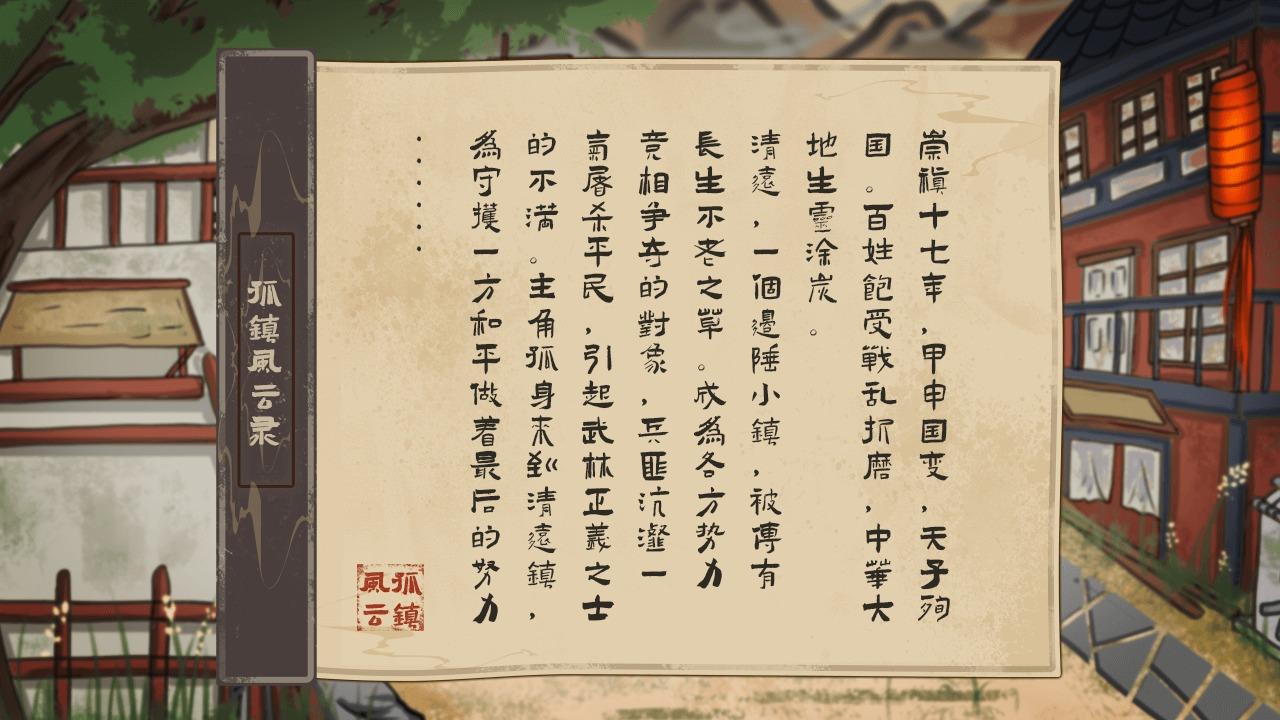 崇禎十七年，甲申国变，天子殉
国。百姓飽受戰乱折磨，中華大
地生靈涂炭。
清遠，一個邊陲小鎮，被傳有
長生不老之草。成為各方势力
竞相争夺的對象，兵匪沆瀣一
氣屠杀平民，引起武林正義之士
的不满。主角孤身来到清遠鎮，
為守護一方和平做着最后的努力
······
孤鎮風云
孤鎮風云录